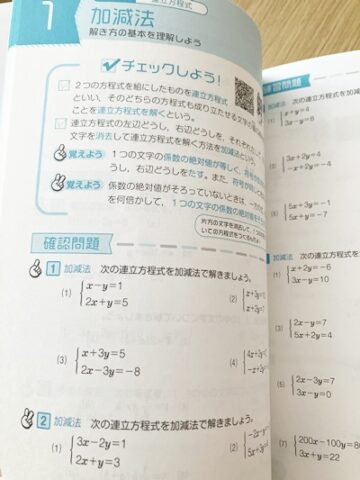 1
連立方程式
加減法
解き方の基本を理解しよう
チェックしよう!
2つの方程式を組にしたものを連立方程式
といい、そのどちらの方程式も成り立たせる文字の
ことを連立方程式を解くという。
連立方程式の左辺どうし、右辺どうしを、それぞれ
文字を消去して連立方程式を解く方法を加減法という。
覚えよう 1つの文字の係数の絶対値が等しく、符号が
うし、右辺どうしをたす。また、符号が
覚えよう 係数の絶対値がそろっていないときは、一方の
を何倍かして、1つの文字の係数の絶対値を
片方の文字を消去して、1つの
いての方程式をつくるんだ
確認問題
1 加減法 次の連立方程式を加減法で解きましょう。
(1) x−y=1
2x+y=5
(2) x+3y=
x+3y=
(3) x+3y=5
2x−3y=−8
(4) 4x+2y=
−x+2y=
2 加減法 次の連立方程式を加減法で解きましょう。
(1) 3x−2y=1
2x+y=3
(2) −2x−y=
5x+3y=
練習問題
加減法 次の連立方程式を加
(1) x+y=4
3x−y=
(3) 3x+2y=4
−x+2y=−4
(5) 5x+3y=−1
5x+y=−7
加減法 次の連立方程式を加
(1) x+2y=−6
3x−y=10
(3) 2x−y=7
5x+2y=4
(5) 2x−3y=7
3x−y=0
(7) 200x−100y=80
3x+y=22